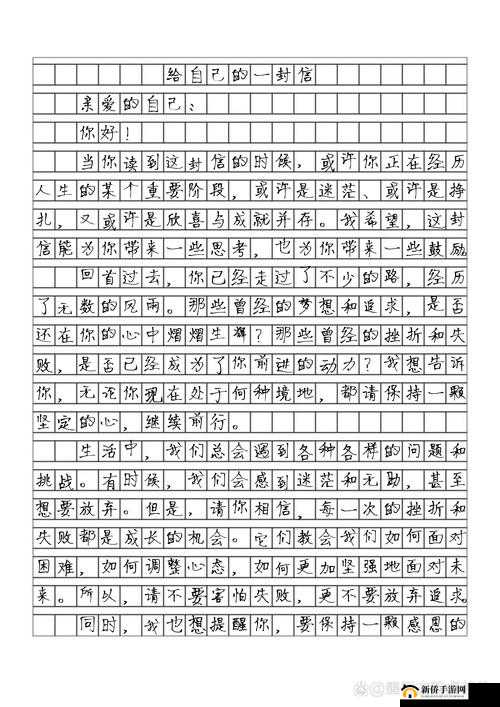 给自己的一封信
亲爱的自己：
你好！
当你读到这封信的时候，或许你正在经历
人生的某个重要阶段，或许是迷茫、或许是挣
扎，又或许是欣喜与成就并存。我希望，这封
信能为你带来一些思考，也为你带来一些鼓励
回首过去，你已经走过了不少的路，经历
了无数的风雨。那些曾经的梦想和追求，是否
还在你的心中熠熠生辉？那些曾经的挫折和失
败，是否已经成为了你前进的动力？我想告诉
你，无论你现在处于何种境地，都请保持一颗
坚定的心，继续前行。
生活中，我们总会遇到各种各样的问题和
挑战。有时候，我们会感到迷茫和无助，甚至
想要放弃。但是，请你相信，每一次的挫折和
失败都是成长的机会。它们教会我们如何面对
困难，如何调整心态，如何更加坚强地面对未
来。所以，请不要害怕失败，更不要放弃追求。
同时，我也想提醒你，要保持一颗感恩的
新侨手游网